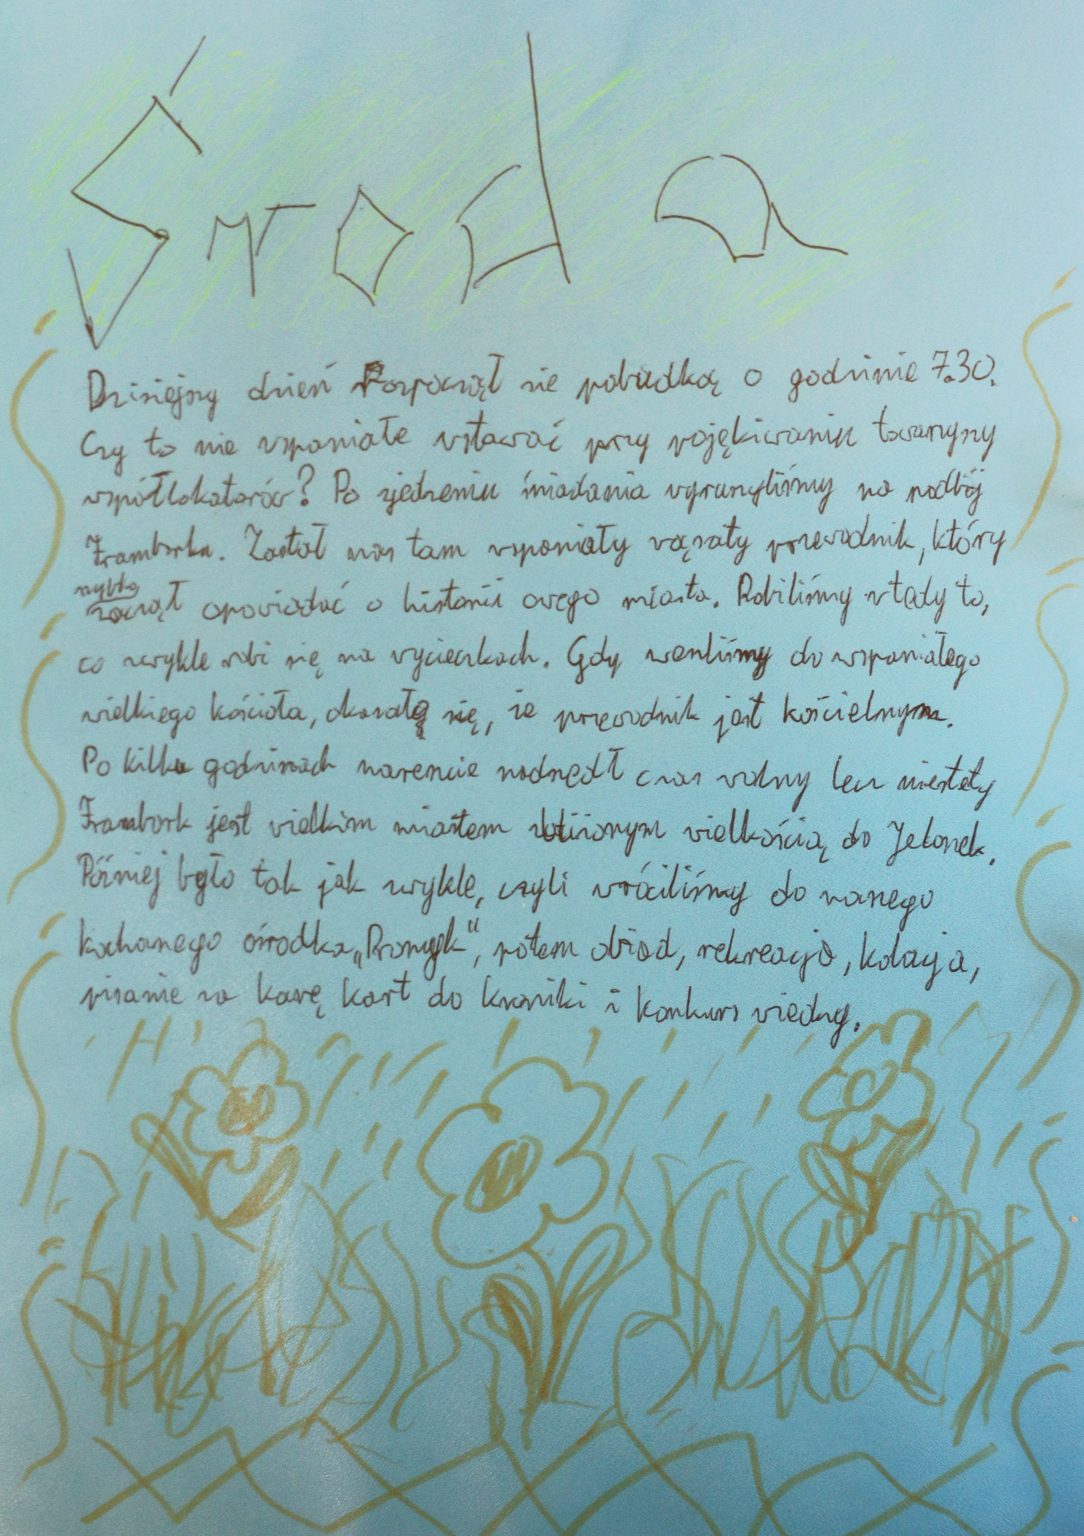 Środa
Dzisiejszy dzień rozpoczął sie pobudką o godzinie 7.30.
Czy to nie wspaniałe wstawać przy pojękiwaniu towarzyszy
współlokatorów? Po zjedzeniu śniadania wyruszyliśmy na podbój
Fromborka. Zastał nas tam wspaniały wąsaty przewodnik, który
szybko
zaczął opowiadać o historii owego miasta. Robiliśmy wtedy to,
co zwykle robi się na wycieczkach. Gdy weszliśmy do wspaniałego
wielkiego kościoła, okazało się, że przewodnik jest kościelnym.
Po kilku godzinach nareszcie nadszedł czas wolny lecz niestety
Frombork jest wielkim miastem zbliżonym wielkością do Jelonek.
Później było tak jak zwykle, czyli wróciliśmy do naszego
kochanego ośrodka „Promyk", potem obiad, rekreacja, kolacja,
pisanie za karę kart do kroniki i konkurs wiedzy.